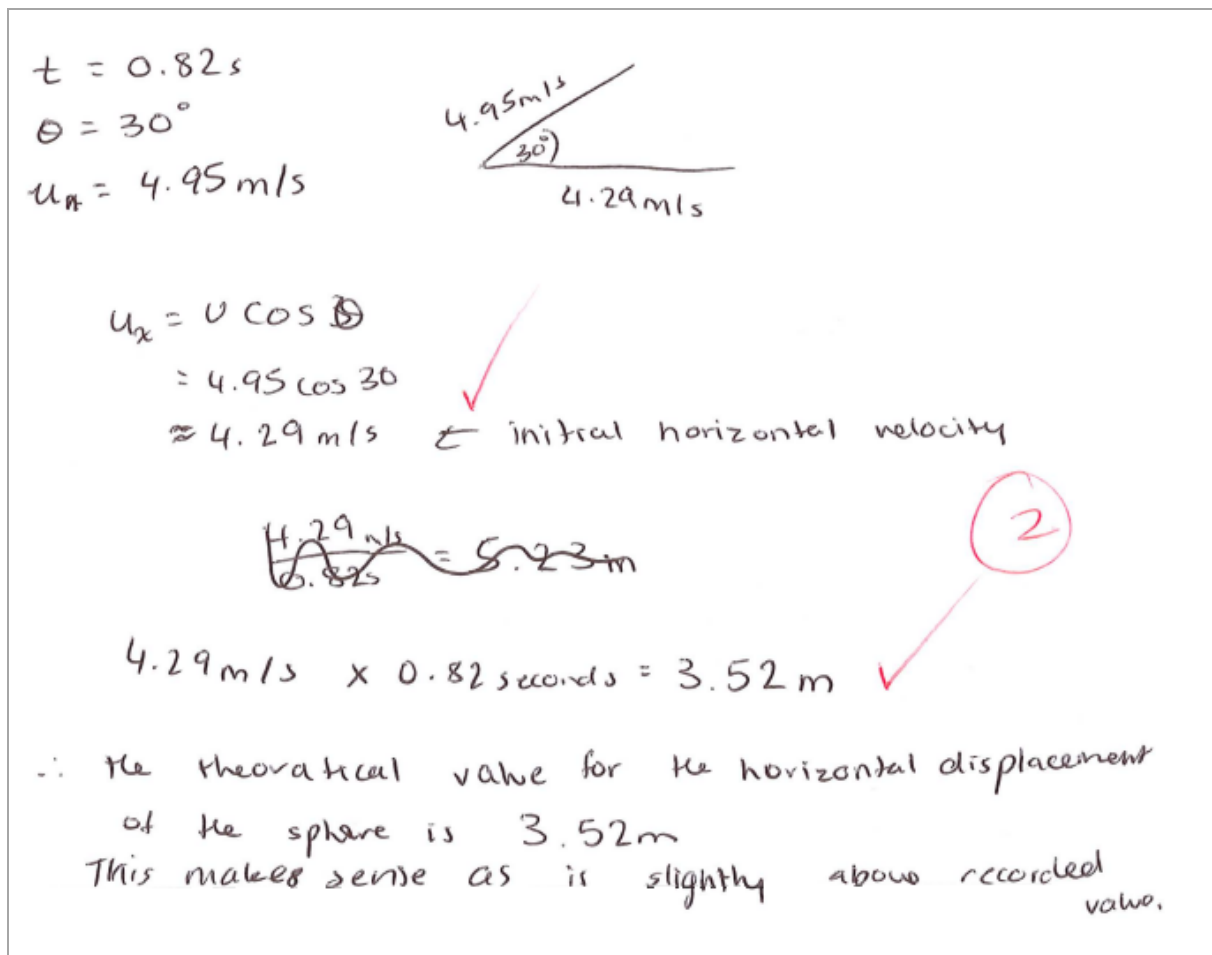 t = 0.82s
θ = 30°
u = 4.95 m/s
4.95m/s
30°
4.29m/s
uₓ = U cos θ
= 4.95 cos 30
≈ 4.29 m/s ← initial horizontal velocity
4.29 m/s
0.82s
= 5.23m
2
4.29 m/s × 0.82 seconds = 3.52 m
∴ the theoratical value for the horizontal displacement
of the sphere is 3.52m
This makes sense as is slightly above recorded
value.